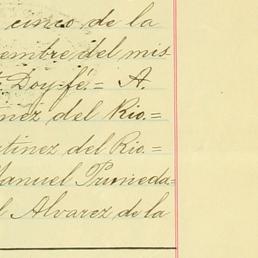 cinco de la
embre del mis
Doy fé.= A.
nez del Rio.=
tinez del Rio.=
Manuel Pruneda=
l Alvarez de la